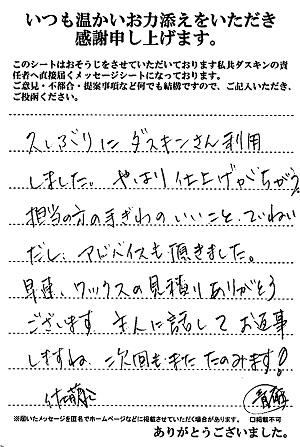 いつも温かいお力添えをいただき
感謝申し上げます。
このシートはおそうじをさせていただいております私共ダスキンの責
任者へ直接届くメッセージシートになっております。
ご意見・不都合・提案事項など何でも結構ですので、ご記入いただき、
ご投函ください。
久しぶりにダスキンさん利用
しました。やはり仕上げがちがう。
担当の方の手ぎわのいいこと、ていねい
だし、アドバイスも頂きました。
早速、ワックスの見積りありがとう
ございます 主人に話してお返事
しますね 二次回もまた たのみます!
※届いたメッセージを匿名でホームページなどに掲載させていただく場合があります。 口掲載不可
ありがとうございました。